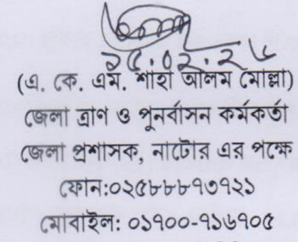 ২৫.০২.২৬
(এ. কে. এম. শাহা আলম মোল্লা)
জেলা ত্রাণ ও পুনর্বাসন কর্মকর্তা
জেলা প্রশাসক, নাটোর এর পক্ষে
ফোন:০২৫৮৮৮৭৩৭২১
মোবাইল: ০১৭০০-৭১৬৭০৫